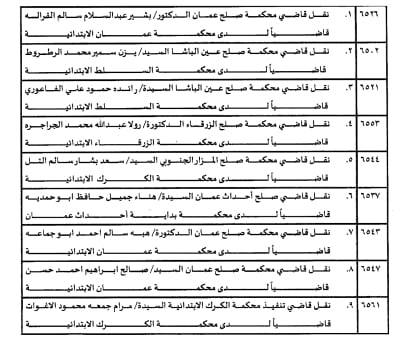 ٦٥٢٦ ١. نقل قاضي محكمة صلح عمان الدكتور/ بشير عبدالسلام سالم الفراله
قاضياً لدى محكمة عمان الابتدائية
٦٥٠٢ ٢. نقل قاضي محكمة صلح عين الباشا السيد/ يزن سمير محمد الرطروط
قاضياً لدى محكمة السلط الابتدائية
٦٥٢١ ٣. نقل قاضي محكمة صلح عين الباشا السيدة/ رائده حمود علي الفاعوري
قاضياً لدى محكمة السلط الابتدائية
٦٥٥٣ ٤. نقل قاضي محكمة صلح الزرقاء الدكتورة/ رولا عبدالله محمد الجراجره
قاضياً لدى محكمة الزرقاء الابتدائية
٦٥٤٤ ٥. نقل قاضي محكمة صلح المزار الجنوبي السيد/ سعد بشار سالم التل
قاضياً لدى محكمة الكرك الابتدائية
٦٥٣٧ ٦. نقل قاضي صلح أحداث عمان السيدة/ هناء جميل حافظ ابو حمديه
قاضياً لدى محكمة بداية أحداث عمان
٦٥٤٣ ٧. نقل قاضي محكمة صلح عمان الدكتورة/ هبه سالم احمد ابو جماعه
قاضياً لدى محكمة عمان الابتدائية
٦٥٤٧ ٨. نقل قاضي محكمة صلح عمان السيد/ صالح ابراهيم احمد حسن
قاضياً لدى محكمة عمان الابتدائية
٦٥٦١ ٩. نقل قاضي تنفيذ محكمة الكرك الابتدائية السيدة/ مرام جمعه محمود الاغوات
قاضياً لدى محكمة الكرك الابتدائية